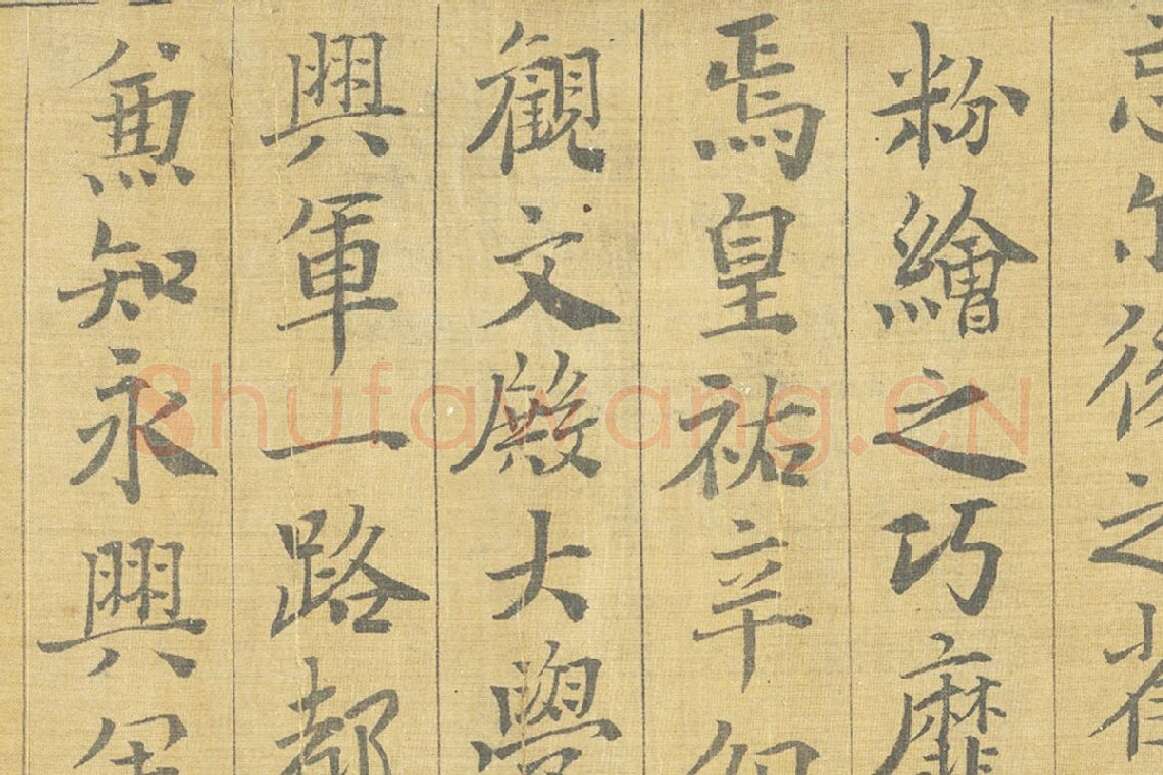 後之
粉繪之巧靡
焉皇祐辛卯
觀文殿大學
興軍一路都
兼知永興軍
Shufawang.CN